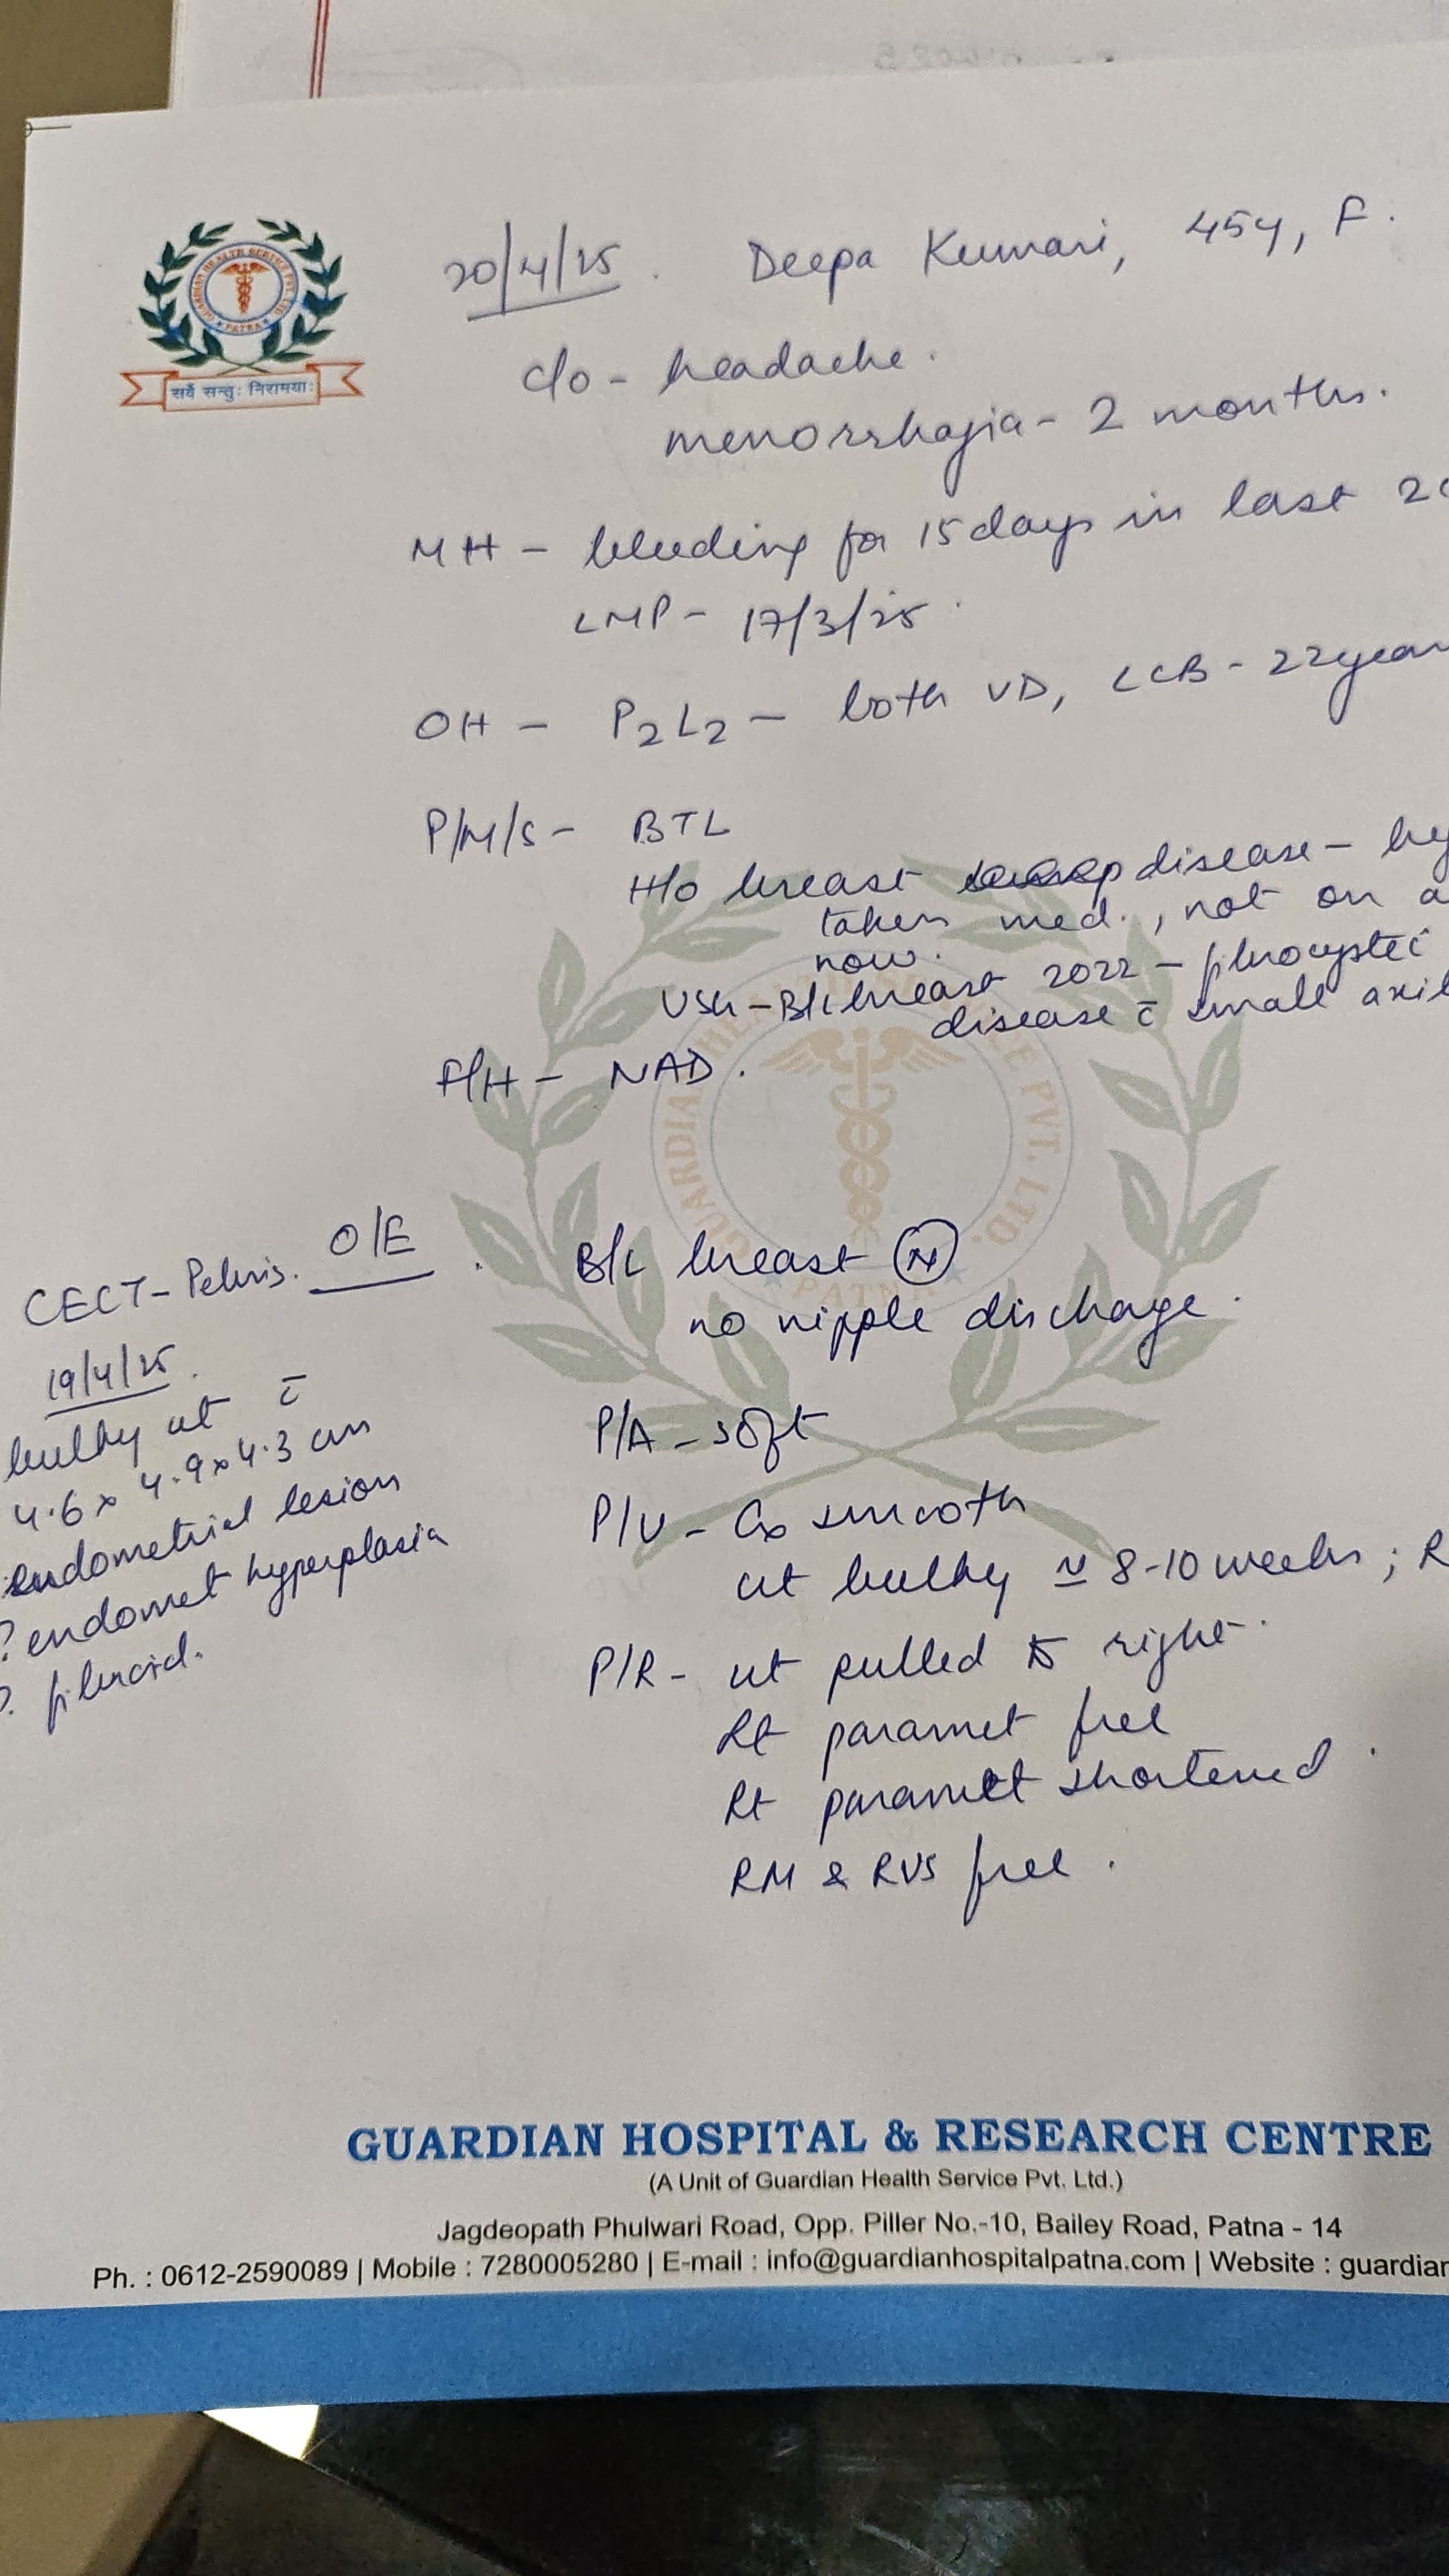 20/4/25. Deepa Kumari, 45y, F.
c/o - headache.
menorrhagia - 2 months.
MH - bleeding for 15 days in last
LMP - 17/3/25.
OH - P2L2 - both VD, LCB - 22 year
P/M/S - BTL
H/O breast disease -
taken med., not on
now.
USG - B/L breast 2022 - fibrocystic
disease c̄ small
F/H - NAD.
O/E
B/L breast Ⓝ
no nipple discharge.
CECT - Pelvis.
19/4/25.
bulky ut c̄
4.6 x 4.9 x 4.3 cm
endometrial lesion
? endomet hyperplasia
? fibroid.
P/A - soft
P/V - Cx smooth
ut bulky ≃ 8-10 weeks; R
P/R - ut pulled to right.
paramet free
Rt paramet shortened.
RM & RVS free.
GUARDIAN HEALTH SERVICE PVT. LTD.
PATNA
सर्वे सन्तु: निरामया:
GUARDIAN HOSPITAL & RESEARCH CENTRE
(A Unit of Guardian Health Service Pvt. Ltd.)
Jagdeopath Phulwari Road, Opp. Piller No.-10, Bailey Road, Patna - 14
Ph. : 0612-2590089 | Mobile : 7280005280 | E-mail : info@guardianhospitalpatna.com | Website : guardian